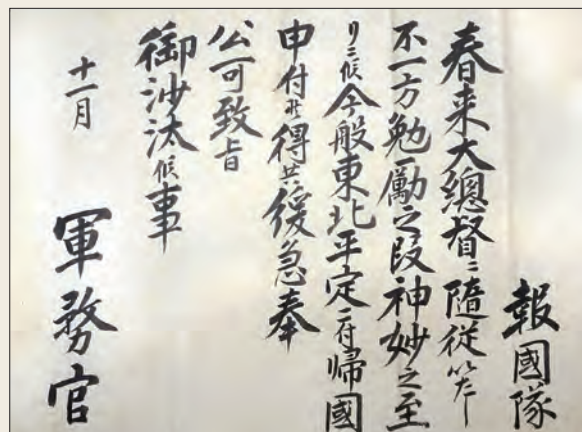 報國隊
春来大總督ニ隨従いたし
不一方勉励之段神妙之至
リニ候今般東北平定ニ付帰國
申付候得共緩急奉
公可致旨
御沙汰候事
十一月
軍務官